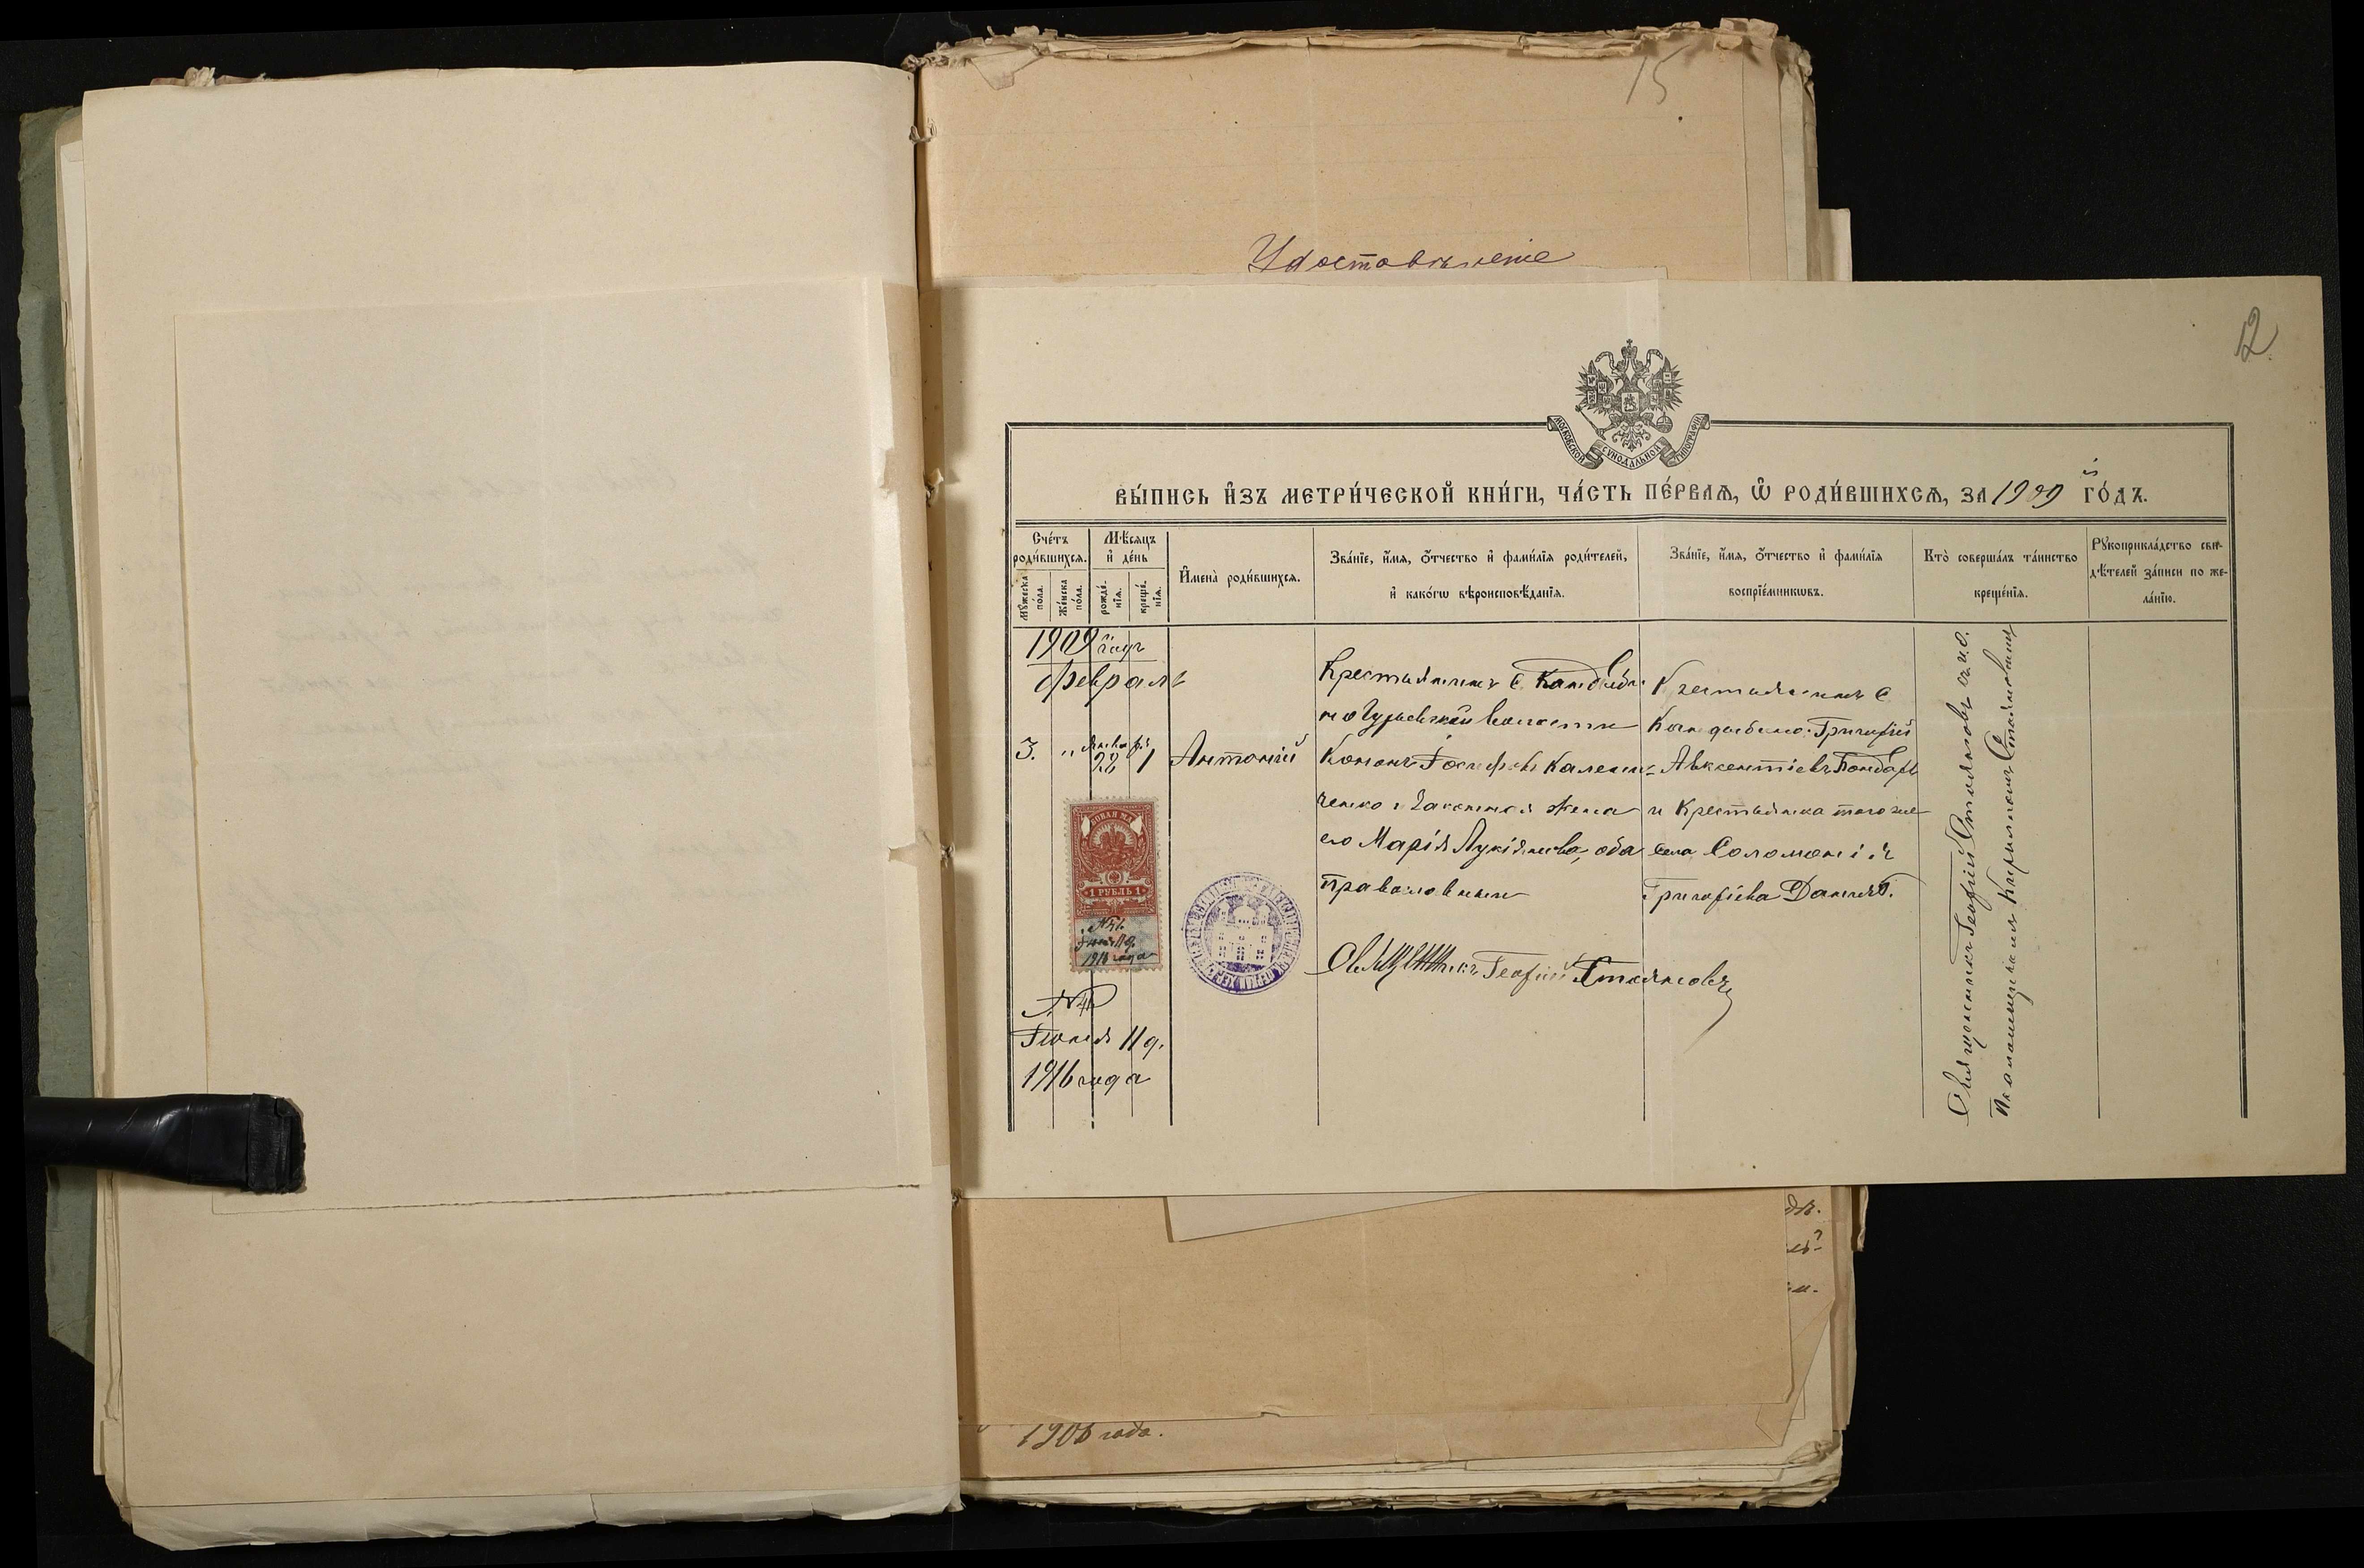 15
Удостовѣреніе
12
МОСКОВСКОЙ СѴНОДАЛЬНОЙ ТИПОГРАФІИ
ВЫ́ПИСЬ И҆ЗЪ МЕТРИ́ЧЕСКОЙ КНИ́ГИ, ЧА́СТЬ ПЕ́РВАѦ, Ѡ҆ РОДИ́ВШИХСѦ, ЗА 1909 й ГО́ДЪ.
Сче́тъ роди́вшихсѧ.
Мꙋ́жеска по́ла.
Же́нска по́ла.
Мѣ́сѧцъ и҆ де́нь
рожде́нїѧ.
креще́нїѧ.
И҆мена̀ роди́вшихсѧ.
Зва́нїе, и҆́мѧ, ѻ҆́тчество и҆ фами́лїѧ роди́телей,
и҆ како́гѡ вѣроисповѣ́данїѧ.
Зва́нїе, и҆́мѧ, ѻ҆́тчество и҆ фами́лїѧ
воспрїе́мникѡвъ.
Кто̀ соверша́лъ та́инство
креще́нїѧ.
Рꙋкоприкла́дство сви-
дѣ́телей за́писи по же-
ла́нїю.
1909 годъ
Февраль
3. " Января 22 1 Антоній
Крестьянинъ с. Кандыби-
но Гурьевской волости
Кононъ Іосифовъ Калени-
ченко и законная жена
его Марія Лукіянова, оба
православные
Крестьянинъ с.
Кандыбино: Григорій
Авксентіевъ Бондарь
и крестьянка того же
села Соломонія
Григоріева
Священникъ Георгій Стояновъ съ и. о.
Псаломщика Кирилломъ
1 РУБЛЬ 1
Іюня 11 д.
1916 года
Священникъ Георгій Стояновъ
Іюня 11 д.
1916 года
1906 года.